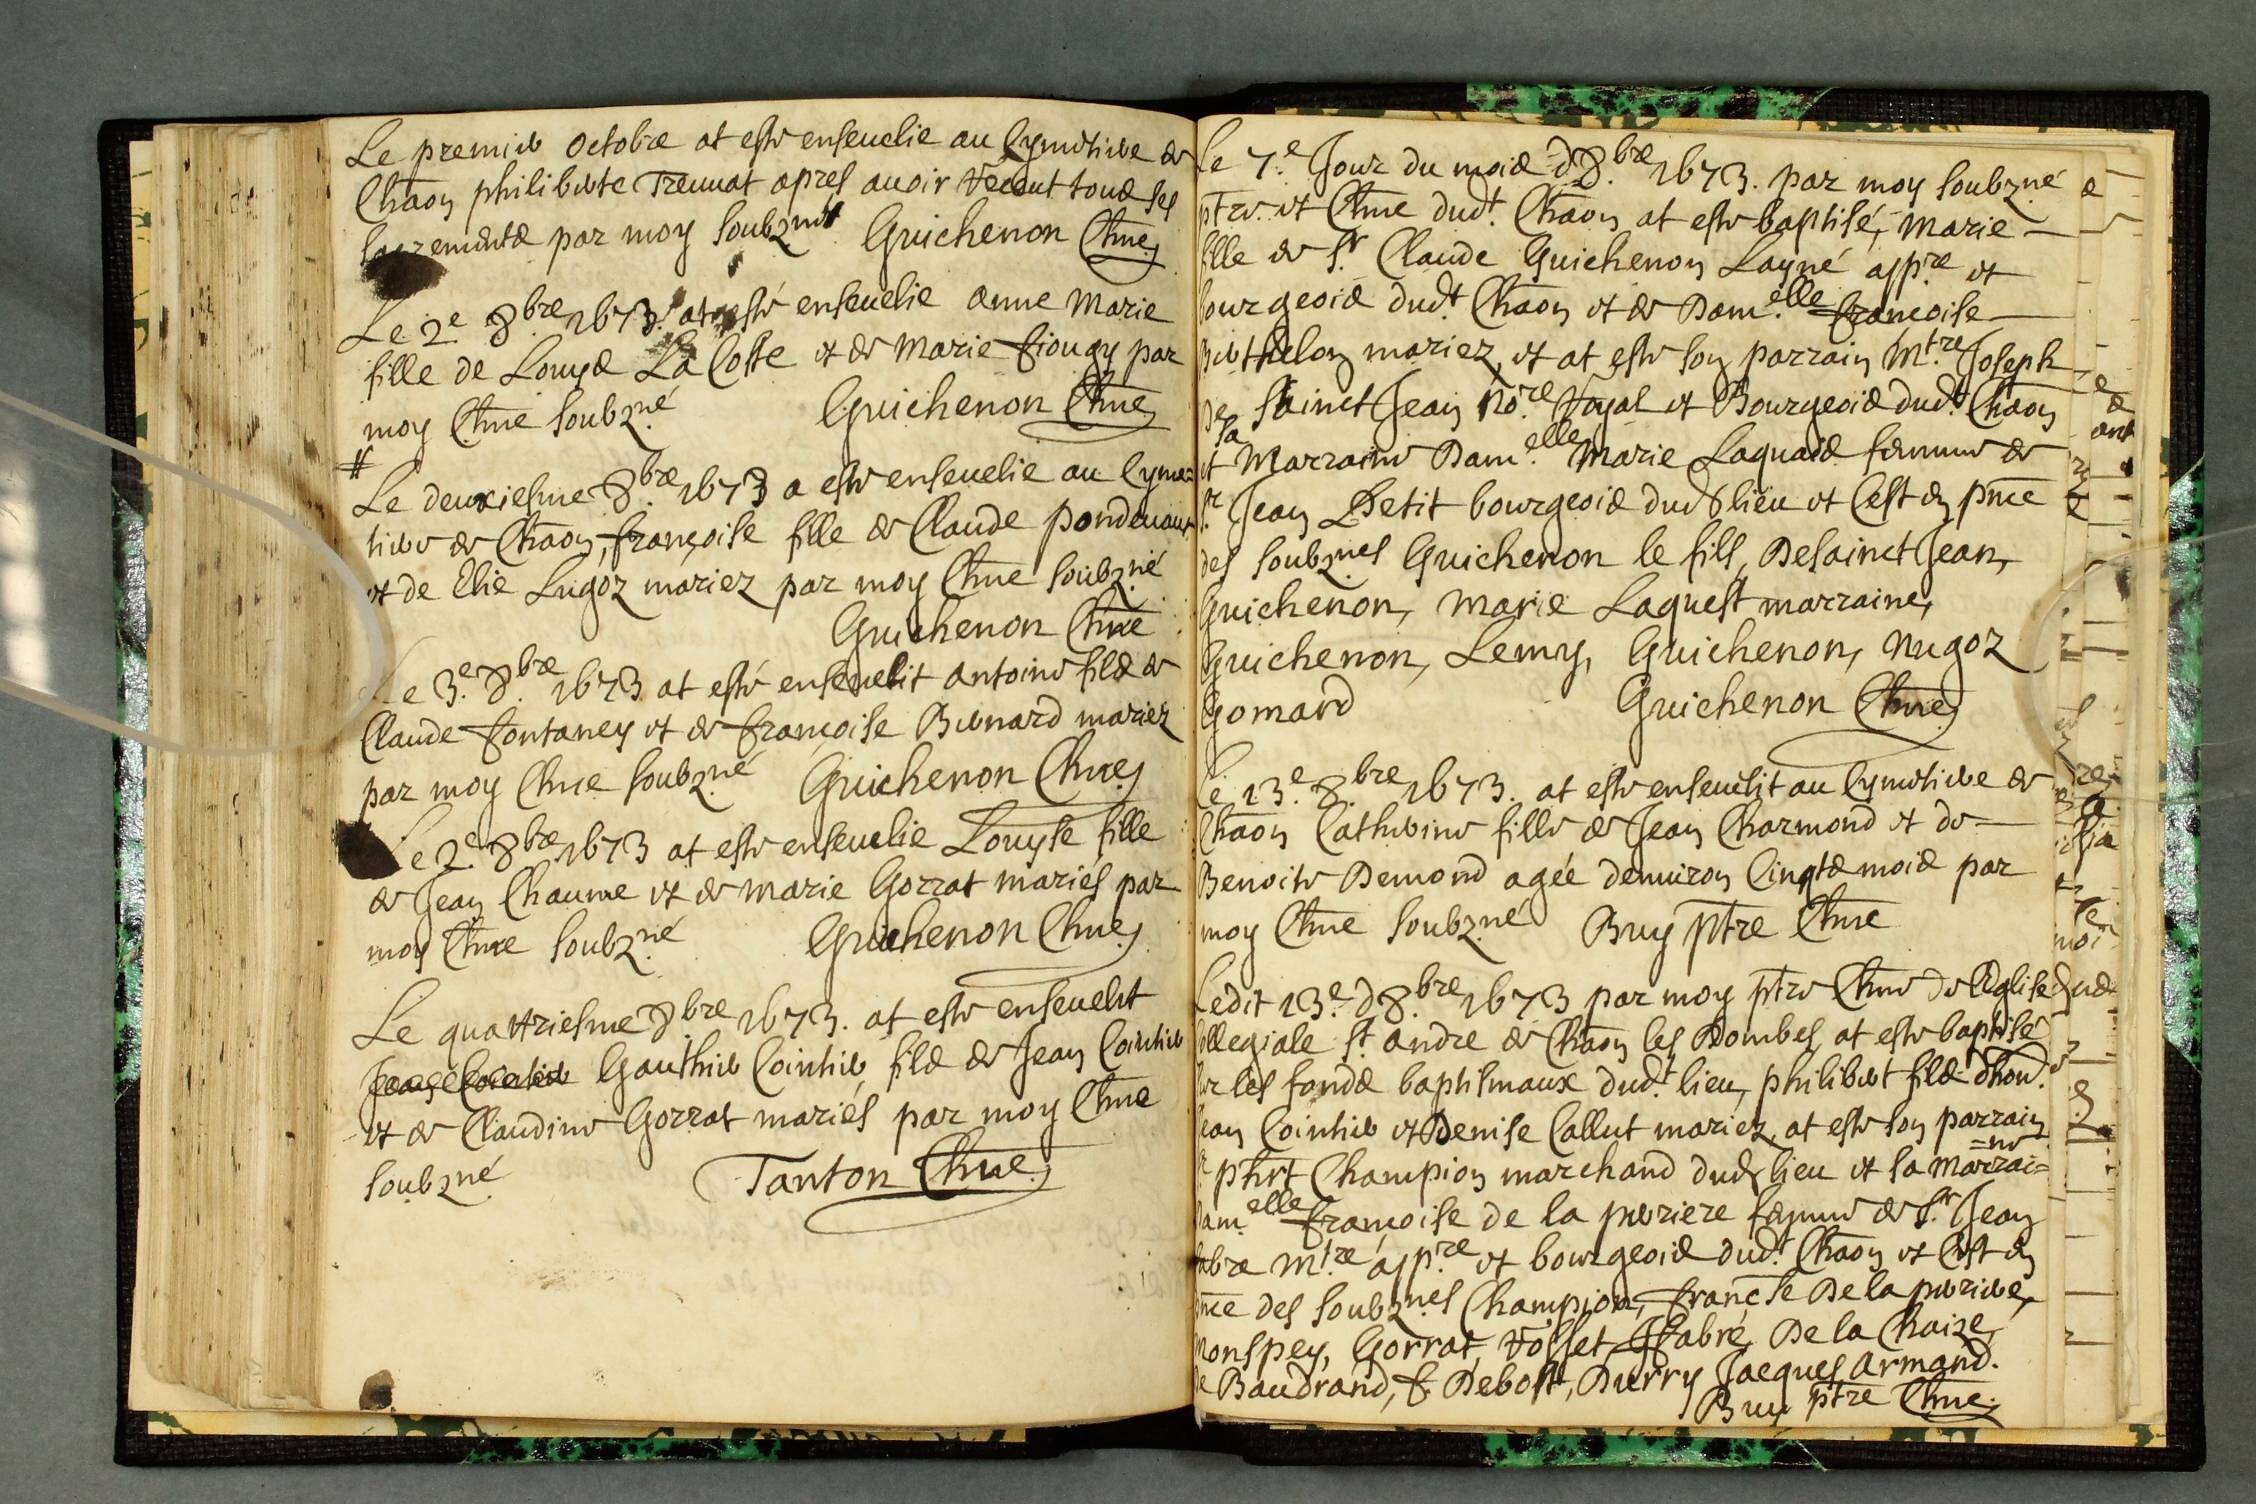 Le premier octobre at esté enseuelie au Cymetiere de
Chaon philiberte Trennat apres auoir receut tous ses
sacrements par moy soubzné Guichenon Chne
Le 2e 8bre 1673. at esté enseuelie anne Marie
fille de Louys La Coste et de Marie fiougy par
moy Chne soubzné Guichenon Chne
#
Le deuxiesme 8bre 1673 a esté enseuelie au Cyme=
tiere de Chaon, françoise fille de Claude pondeuaux
et de Elie Lugoz mariez par moy Chne soubzné
Guichenon Chne
Le 3e 8bre 1673 at esté enseuelit antoine fils de
Claude fontaney et de françoise Bernard mariez
par moy Chne soubzné Guichenon Chne
Le 2e 8bre 1673 at esté enseuelie Louyse fille
de Jean Chaume et de Marie Gorrat mariés par
moy Chne soubzné Guichenon Chne
Le quattriesme 8bre 1673. at esté enseuelit
Gauthier Cointier fils de Jean Cointier
et de Claudine Gorrat mariés par moy Chne
soubzné Tanton Chne
Le 7e Jour du mois d8bre 1673. par moy soubzné
ptre et Chne dudt Chaon at esté baptisé, Marie
fille de Sr Claude Guichenon Layné appre et
bourgeois dudt Chaon et de Damelle françoise
Berthelon mariez, et at esté son parrain Mtre Joseph
De Sainct Jean Nore Royal et Bourgeois dudt Chaon
et sa Marraine Damelle Marie Laquais femme de
Sr Jean Petit bourgeois dud lieu et Cest en pnce
des soubznes Guichenon le fils, Desainct Jean,
Guichenon, Marie Laquest marraine,
Guichenon, Lemy, Guichenon, Nugoz
Gomard Guichenon Chne
Le 13e 8bre 1673. at esté enseuelit au Cymetiere de
Chaon Catherine fille de Jean Charmond et de
Benoite Demond agée denuiron Cinqts mois par
moy Chne soubzné Buy ptre Chne
Ledit 13e d8bre 1673 par moy ptre Chne de lEglise
Collegiale St andre de Chaon les Dombes, at esté baptisé
sur les fonds baptismaux dudt lieu, philibert fils dhon.
Jean Cointier et Denise Callut mariez, at esté son parrain
Sr phrt Champion marchand dud lieu et sa marrai=
=ne
Damelle françoise de la perriere femme de Sr Jean
fabre Mtre appre et bourgeois dudt Chaon et Cest en
pnce des soubznes Champion, francse De la periere,
Monspey, Gorrat, Vosset, J fabre, De la Chaize,
de Baudrand, f. Debost, Durry Jacques Armand.
Buy ptre Chne